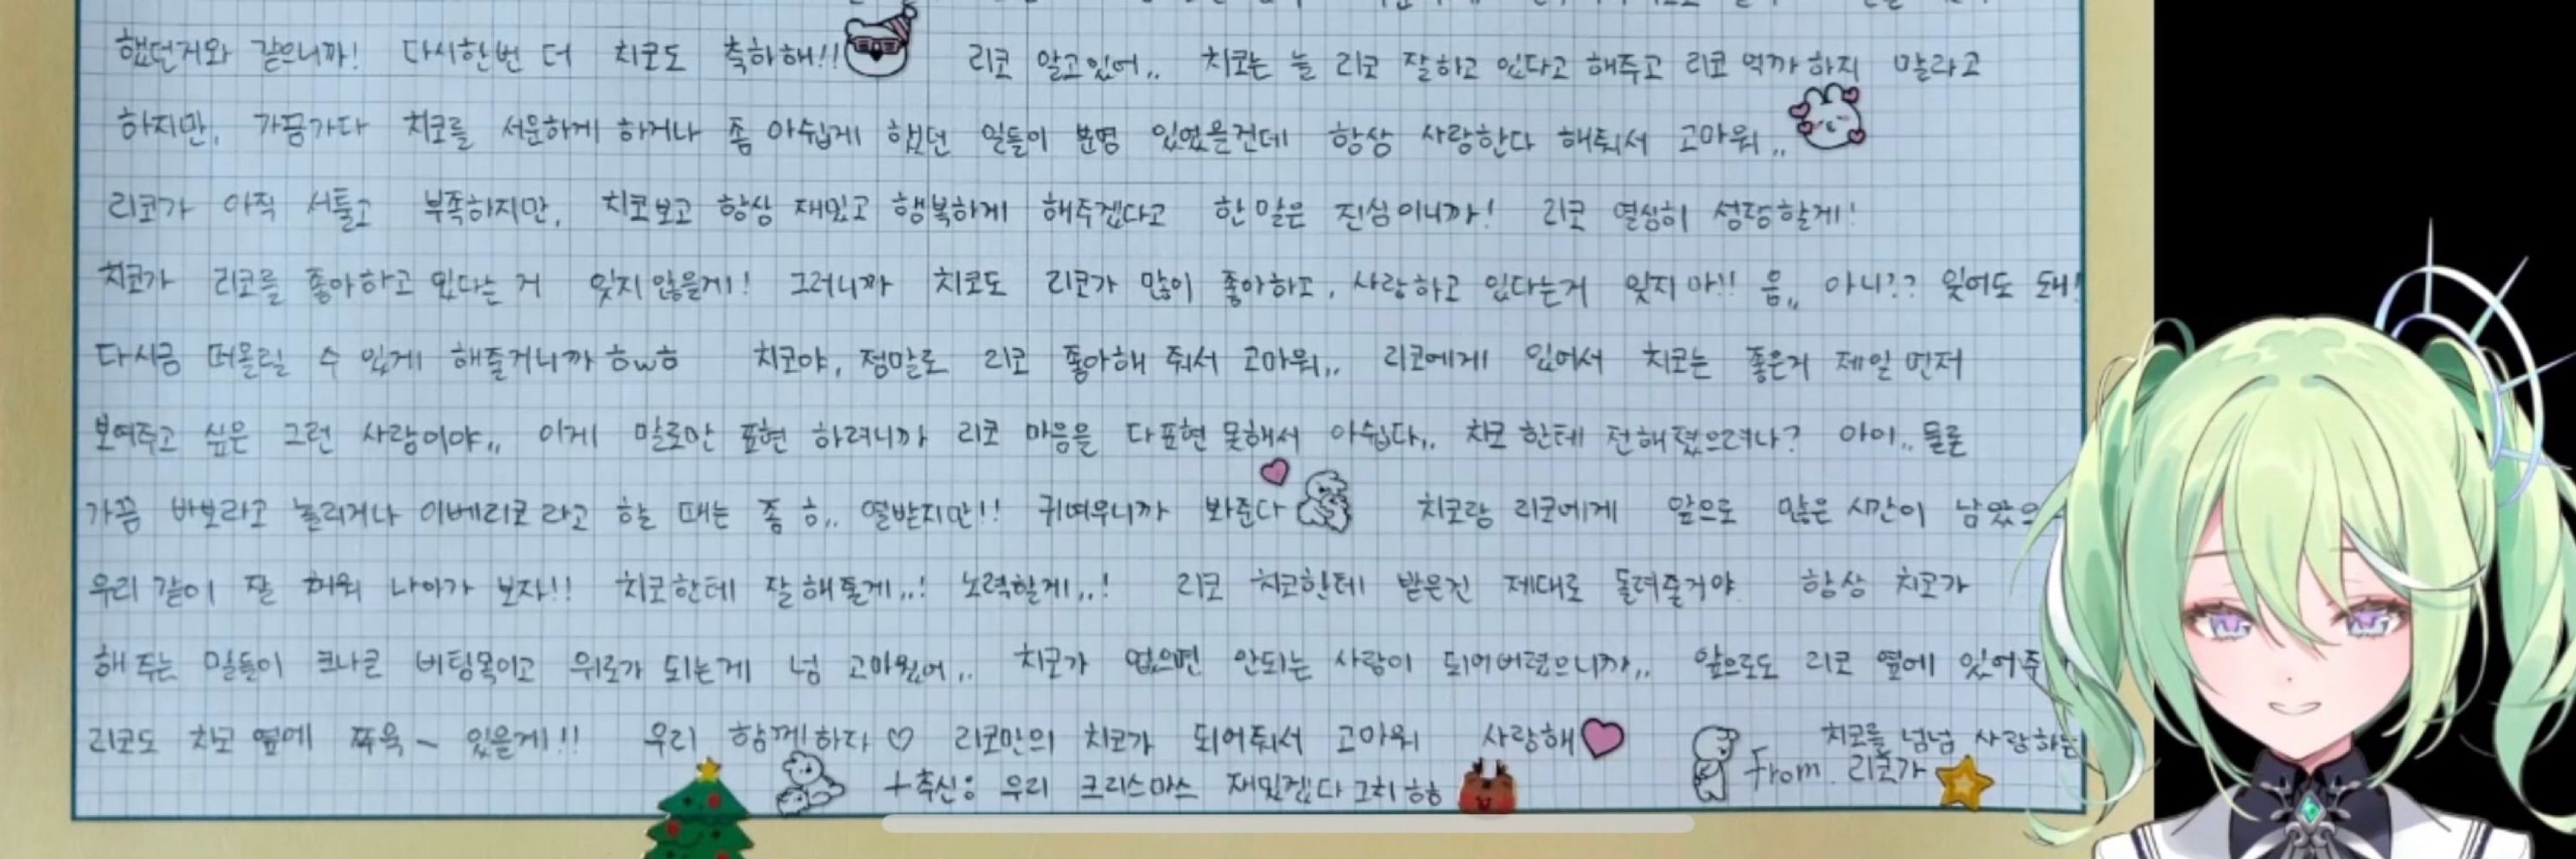 했던거와 같으니까! 다시한번 더 치코도 축하해!! 리코 알고있어,, 치코는 늘 리코 잘하고 있다고 해주고 리코 억까 하지 말라고
하지만, 가끔가다 치코를 서운하게 하거나 좀 아쉽게 했던 일들이 분명 있었을건데 항상 사랑한다 해줘서 고마워,,
리코가 아직 서툴고 부족하지만, 치코보고 항상 재밌고 행복하게 해주겠다고 한 말은 진심이니까! 리코 열심히 성장할게!
치코가 리코를 좋아하고 있다는 거 잊지 않을게! 그러니까 치코도 리코가 많이 좋아하고, 사랑하고 있다는거 잊지 마!! 음,, 아니?? 잊어도 돼!
다시금 떠올릴 수 있게 해줄거니까 ㅎwㅎ 치코야, 정말로 리코 좋아해 줘서 고마워,, 리코에게 있어서 치코는 좋은거 제일 먼저
보여주고 싶은 그런 사람이야,, 이게 말로만 표현 하려니까 리코 마음을 다표현 못해서 아쉽다,, 치코 한테 전해졌으려나? 아이,, 물론
가끔 바보라고 놀리거나 이베리코 라고 할 때는 좀 하,, 열받지만!! 귀여우니까 봐준다 치코랑 리코에게 앞으로 많은 시간이 남았으
우리 같이 잘 채워 나아가 보자!! 치코한테 잘 해줄게,,! 노력할게,,! 리코 치코한테 받은건 제대로 돌려줄거야 항상 치코가
해 주는 말들이 크나큰 버팀목이고 위로가 되는게 넘 고마웠어,, 치코가 없으면 안되는 사람이 되어버렸으니까,, 앞으로도 리코 옆에 있어주
리코도 치코 옆에 쭈욱~ 있을게!! 우리 함께하자♡ 리코만의 치코가 되어줘서 고마워 사랑해
치코를 넘넘 사랑하는
+추신: 우리 크리스마스 재밌겠다 그치 ㅎㅎ From. 리코가